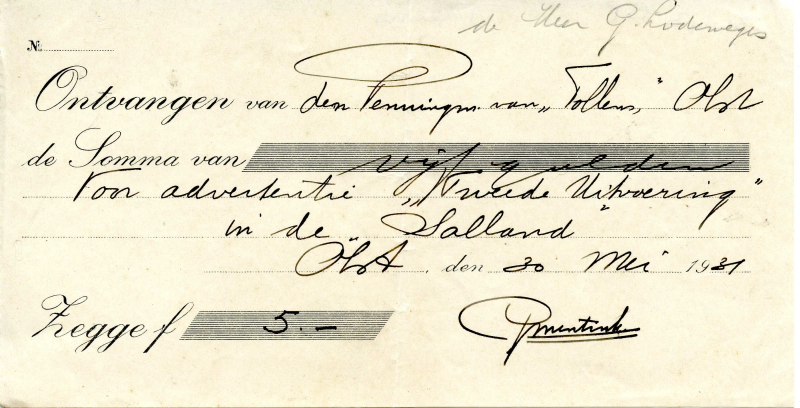 de Heer G. Lodeweges
No.
Ontvangen van den Penningm. van „Tollens," Olst
de Somma van vijf gulden
Voor advertentie „Tweede Uitvoering"
in de „Salland"
Olst, den 30 Mei 1931
Zegge f 5.—